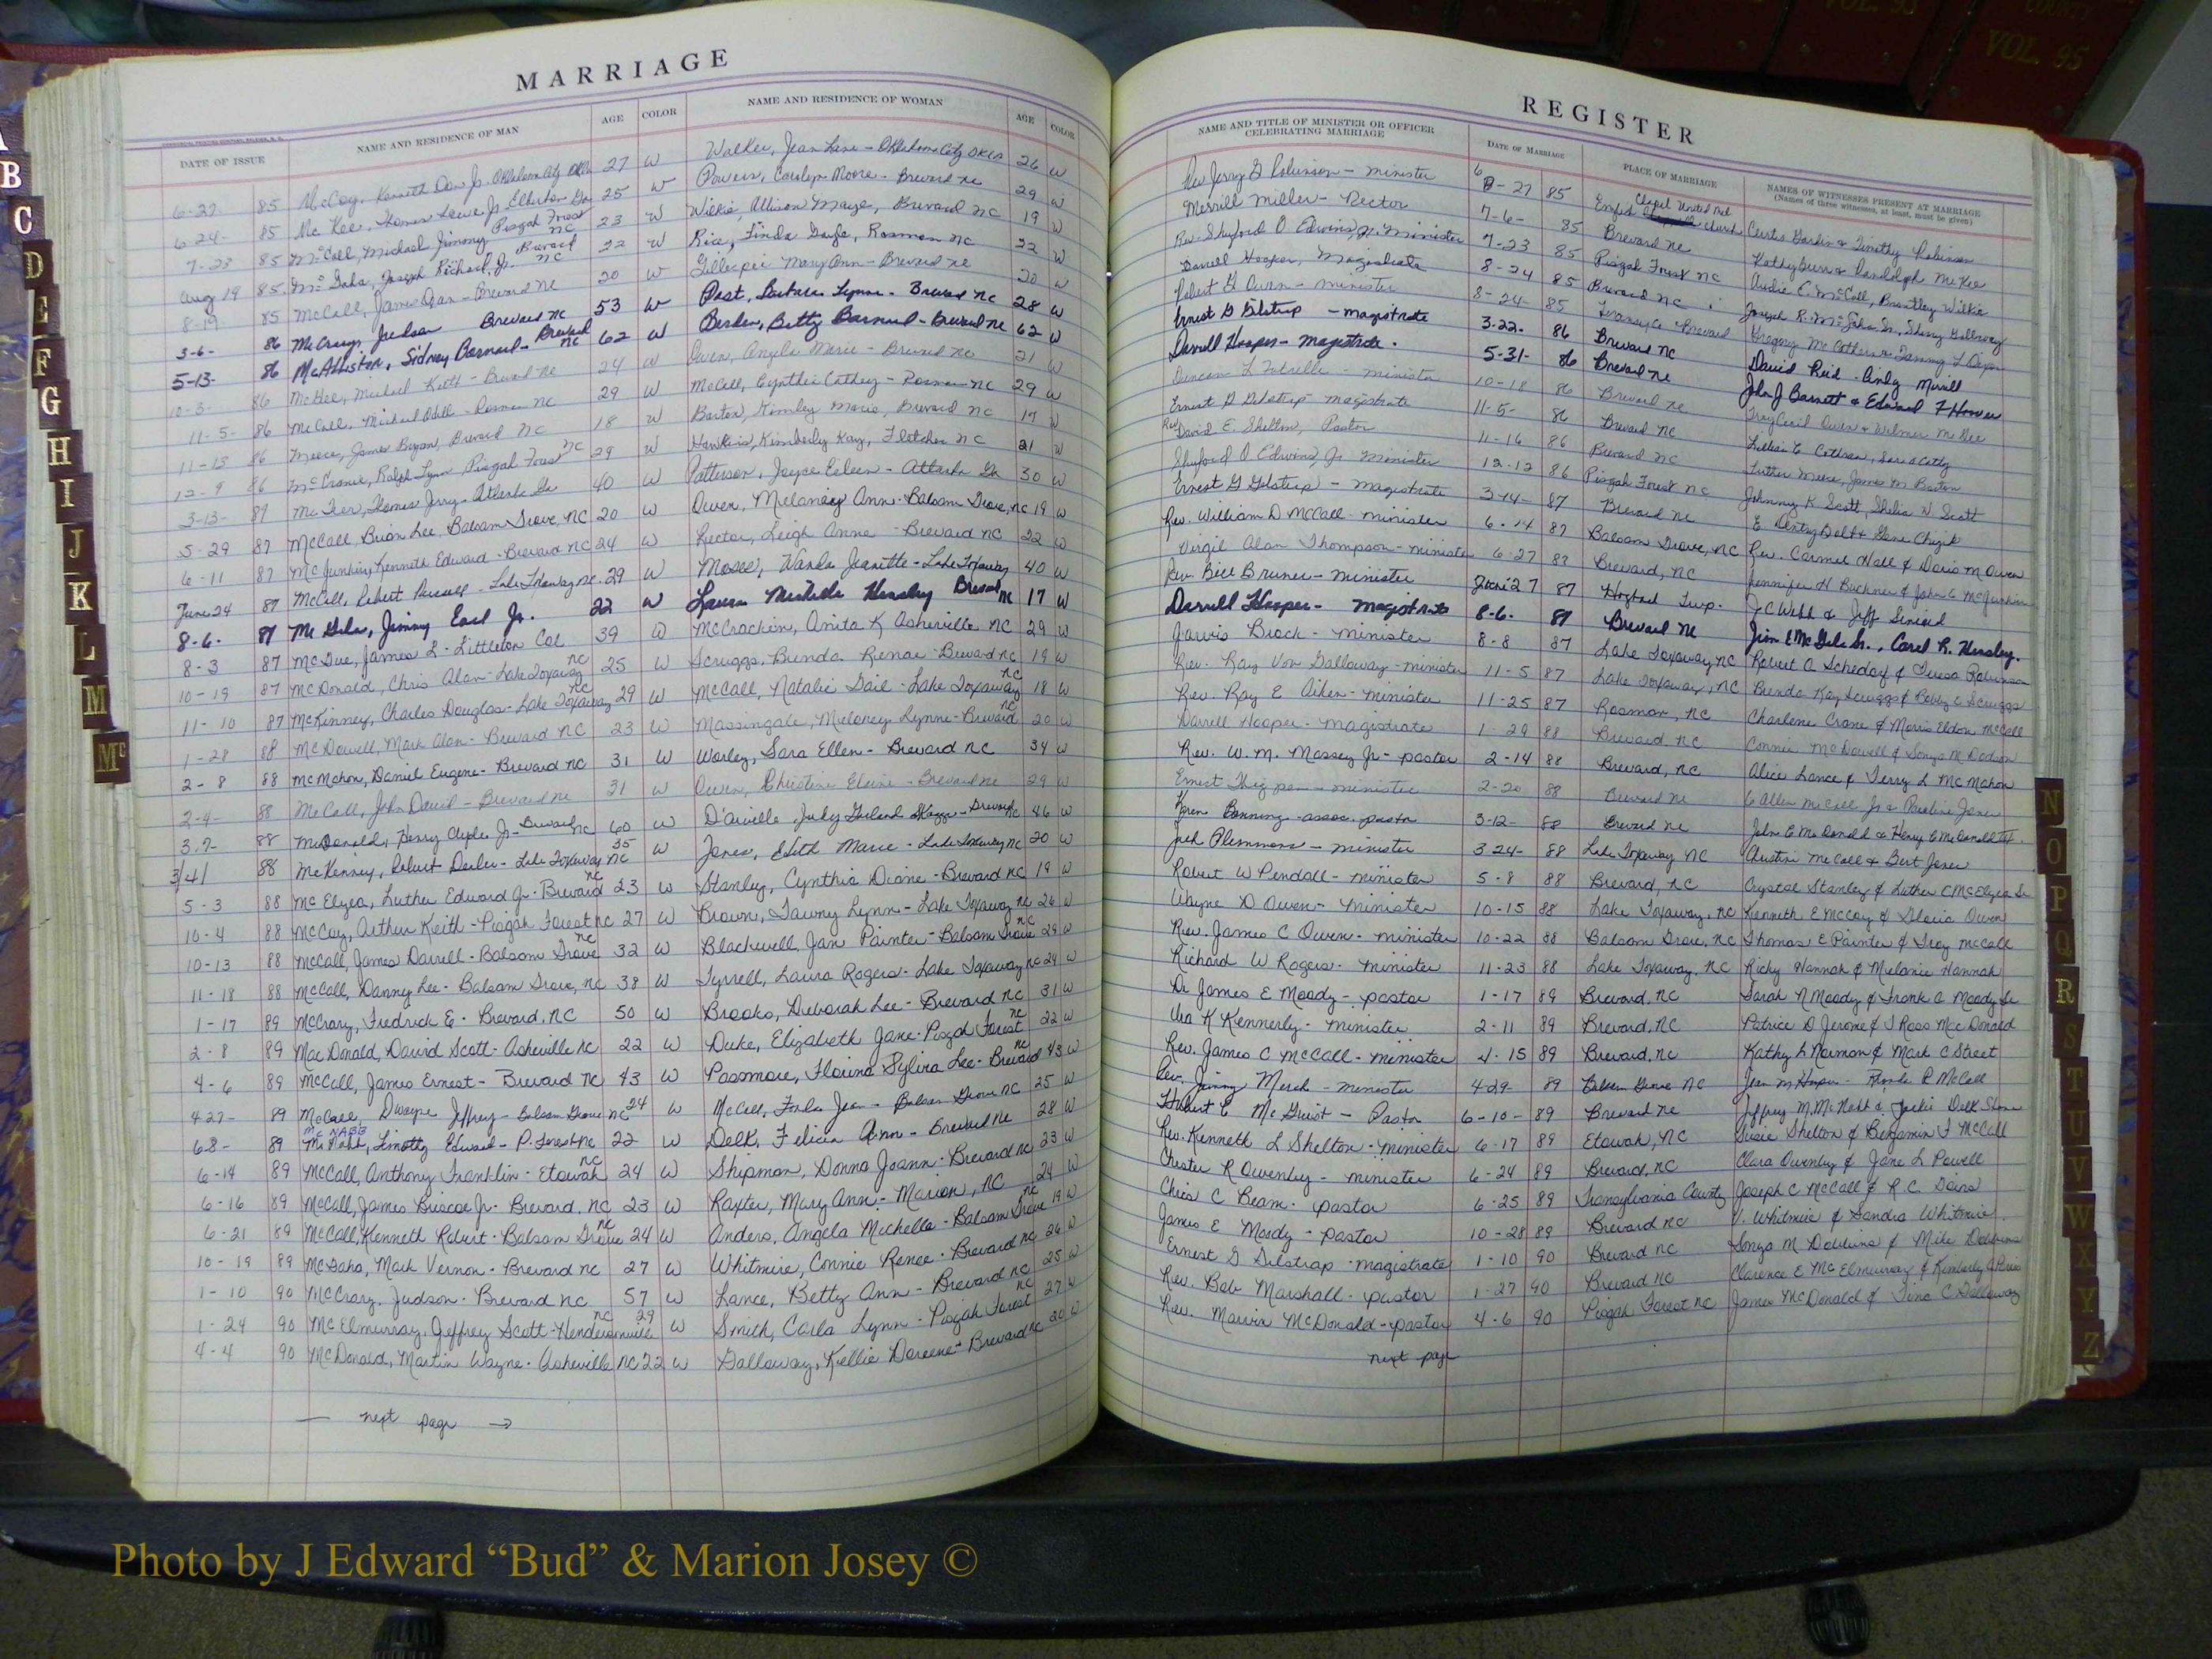 COUNTY
VOL. 93
VOL. 95
MARRIAGE
DATE OF ISSUE NAME AND RESIDENCE OF MAN AGE COLOR NAME AND RESIDENCE OF WOMAN AGE COLOR
6-27- 85 McCoy, Kenneth Don Jr. Oklahoma City Okla 27 W Walker, Jean Lane - Oklahoma City Okla 26 W
6-24- 85 McKee, Thomas Jr. Elberton Ga 25 W Powers, Carolyn Moore - Brevard NC 29 W
7-23 85 McCall, Michael Jimmy Pisgah Forest NC 23 W Wilkie, Allison Maye, Brevard NC 19 W
Aug 19 85 McGaha, Joseph Richard, Jr. Brevard NC 22 W Rice, Linda Gayle, Rosman NC 22 W
8-19 85 McCall, James Dean - Brevard NC 20 W Gillespie Mary Ann - Brevard NC 20 W
3-6- 86 McCrary, Judson Brevard NC 53 W Post, Barbara Lynne - Brevard NC 28 W
5-13- 86 McAlliston, Sidney Barnard - Brevard NC 62 W Borden, Betty Barnard - Brevard NC 62 W
10-3- 86 McGee, Michael Keith - Brevard NC 24 W Owen, Angela Marie - Brevard NC 21 W
11-5- 86 McCall, Michael Odell - Rosman NC 29 W McCall, Cynthia Cathey - Rosman NC 29 W
11-13 86 Meece, James Bryan, Brevard NC 18 W Barton, Kimley Marie, Brevard NC 17 W
12-9 86 McCrane, Ralph Lynn Pisgah Forest NC 29 W Hawkins, Kimberly Kay, Fletcher NC 21 W
3-13- 87 McTeer, Thomas Jerry - Atlanta Ga 40 W Patterson, Joyce Eileen - Atlanta Ga 30 W
5-29 87 McCall, Brian Lee, Balsam Grove, NC 20 W Owen, Melaney Ann - Balsam Grove, NC 19 W
6-11 87 McJunkin, Kenneth Edward - Brevard NC 24 W Rector, Leigh Anna - Brevard NC 22 W
June 24 87 McCall, Robert Russell - Lake Toxaway NC 29 W Moses, Wanda Jeanette - Lake Toxaway 40 W
8-6- 87 McGila, Jimmy Earl Jr. 22 W Laura Michelle Hensley Brevard NC 17 W
8-3 87 McDue, James L - Littleton Col 39 W McCrackin, Anita K Asheville NC 29 W
10-19 87 McDonald, Chris Alan - Lake Toxaway NC 25 W Scruggs, Brenda Renae - Brevard NC 19 W
11-10 87 McKinney, Charles Douglas - Lake Toxaway NC 29 W McCall, Natalie Gail - Lake Toxaway NC 18 W
1-28 88 McDowell, Mark Alan - Brevard NC 23 W Massingale, Meloney Lynne - Brevard NC 20 W
2-8 88 McMahon, Daniel Eugene - Brevard NC 31 W Worley, Sara Ellen - Brevard NC 34 W
2-4- 88 McCall, John David - Brevard NC 31 W Owen, Christine Elaine - Brevard NC 29 W
3-7- 88 McDonald, Henry Clyde Jr - Brevard NC 60 W Judy Garland Skaggs - Brevard NC 46 W
3/4/ 88 McKinney, Robert Dexler - Lake Toxaway NC 35 W Jones, Edith Marie - Lake Toxaway NC 20 W
5-3 88 McElyea, Luther Edward Jr - Brevard NC 23 W Stanley, Cynthia Diane - Brevard NC 19 W
10-4 88 McCoy, Arthur Keith - Pisgah Forest NC 27 W Brown, Tawny Lynn - Lake Toxaway NC 26 W
10-13 88 McCall, James Darrell - Balsam Grove NC 32 W Blackwell, Jan Painter - Balsam Grove NC 29 W
11-18 88 McCall, Danny Lee - Balsam Grove, NC 38 W Tyrrell, Laura Rogers - Lake Toxaway NC 24 W
1-17 89 McCrary, Fredrick E - Brevard, NC 50 W Brooks, Deborah Lee - Brevard NC 31 W
2-8 89 MacDonald, David Scott - Asheville NC 22 W Duke, Elizabeth Jane - Pisgah Forest NC 22 W
4-6 89 McCall, James Ernest - Brevard NC 43 W Passmore, Florina Sylvia Lee - Brevard NC 43 W
4-27- 89 McCall, Dwayne Jeffrey - Balsam Grove NC 24 W McCall, Jean - Balsam Grove NC 25 W
6-8- 89 McNabb, Timothy Edward - P. Forest NC 22 W Delk, Felicia Ann - Brevard NC 28 W
McNABB
6-14 89 McCall, Anthony Franklin - Etowah NC 24 W Shipman, Donna Joann - Brevard NC 23 W
6-16 89 McCall, James Briscoe Jr - Brevard, NC 23 W Raxter, Mary Ann - Marion, NC 24 W
6-21 89 McCall, Kenneth Robert - Balsam Grove NC 24 W Anders, Angela Michelle - Balsam Grove NC 19 W
10-19 89 McGaha, Mark Vernon - Brevard NC 27 W Whitmire, Connie Renee - Brevard NC 26 W
1-10 90 McCrary, Judson - Brevard NC 57 W Lance, Betty Ann - Brevard NC 25 W
1-24 90 McElmurray, Jeffrey Scott - Hendersonville NC 29 W Smith, Carla Lynn - Pisgah Forest NC 27 W
4-4 90 McDonald, Martin Wayne - Asheville NC 22 W Galloway, Kellie Doreene - Brevard NC 20 W
— next page →
REGISTER
NAME AND TITLE OF MINISTER OR OFFICER CELEBRATING MARRIAGE DATE OF MARRIAGE PLACE OF MARRIAGE NAMES OF WITNESSES PRESENT AT MARRIAGE
(Names of three witnesses, at least, must be given)
Rev Jerry G Robinson - minister 6-27 85 Chapel United Met Church Curtis Garkin & Timothy Robinson
Merrill Miller - Rector 7-6- 85 Brevard NC Kathy Burr & Randolph McKee
Rev. Shuford O Edwins, Jr. Minister 7-23 85 Pisgah Forest NC Audie C. McCall, Brantley Wilkie
Darrell Hooper, Magistrate 8-24 85 Brevard NC Joseph R. McGaha Sr, Sherry Galloway
Robert G Owen - minister 8-24- 85 Brevard Gregory McCathern & Tammy L
Ernest G Gilstrap - magistrate 3-22- 86 Brevard NC David Reid - Cindy Merrill
Darrell Hooper - magistrate. 5-31- 86 Brevard NC John J Barnett & Edward F Hoover
Duncan L - minister 10-18 86 Brevard NC Troy Cecil Owen & Wilma McGee
Ernest G Gilstrap magistrate 11-5- 86 Brevard NC Lillian E Cothran, Sara
Rev David E. Shelton, Pastor 11-16 86 Brevard NC Luther Meece, James M Barton
Shuford O Edwins, Jr Minister 12-12 86 Pisgah Forest NC Johnny K Scott, Shelia N. Scott
Ernest G Gilstrap - magistrate 3-14- 87 Brevard NC E
Rev. William D McCall - minister 6-14 87 Balsam Grove, NC Rev. Carmel Hall & Doris M Owen
Virgil Alan Thompson - minister 6-27 87 Brevard, NC Jennifer H Buckner & John C McJunkin
Rev Bill Bruner - Minister June 27 87 Hogback Twp. J C Webb & Jeff Siniard
Darrell Hooper - magistrate 8-6- 87 Brevard NC Jim E McGila Sr., Carol R. Hensley.
Jarvis Brock - minister 8-8 87 Lake Toxaway NC Robert A Schedorf & Teresa Robinson
Rev. Ray Von Galloway - minister 11-5 87 Lake Toxaway, NC Brenda Kay Scruggs & Bobby C Scruggs
Rev. Ray E Aiken - minister 11-25 87 Rosman, NC Charlene Crane & Morris Eldon McCall
Darrell Hooper - magistrate 1-29 88 Brevard, NC Connie McDowell & Sonya M Dodson
Rev. W. M. Massey Jr - pastor 2-14 88 Brevard, NC Alice Lance & Terry L McMahon
Ernest Thigpen - minister 2-20 88 Brevard NC C Allen McCall Jr & Pauline Jones
Karen Bonning - assoc. pastor 3-12- 88 Brevard NC John E McDonald & Henry C McDonald III.
Jack Plemmons - minister 3-24- 88 Lake Toxaway NC Austin McCall & Bert Jones
Robert W Pendall - minister 5-8 88 Brevard, NC Crystal Stanley & Luther C McElyea Sr
Wayne D Owen - Minister 10-15 88 Lake Toxaway, NC Kenneth E McCoy & Gloria Owen
Rev. James C Owen - minister 10-22 88 Balsam Grove, NC Thomas E Painter & Troy McCall
Richard W Rogers - minister 11-23 88 Lake Toxaway, NC Ricky Hannah & Melanie Hannah
Dr James E Moody - pastor 1-17 89 Brevard, NC Sarah N Moody & Frank A Moody Sr
Ira K Kennerly - minister 2-11 89 Brevard, NC Patrice D Jerome & J Ross MacDonald
Rev. James C McCall - minister 4-15 89 Brevard, NC Kathy L Norman & Mark C Street
Rev. Jimmy Merck - minister 4-29- 89 Balsam Grove NC Jean M Hooper - Rhonda R McCall
Hubert E McGuirt - Pastor 6-10- 89 Brevard NC Jeffrey M. McNabb & Jackie Delk
Rev. Kenneth L Shelton - minister 6-17 89 Etowah, NC Susie Shelton & Benjamin F McCall
Chester R Owenby - minister 6-24 89 Brevard, NC Clara Owenby & Jane L Powell
Chris C Beam - pastor 6-25 89 Transylvania County Joseph C McCall & R. C. Davis
James E Moody - pastor 10-28 89 Brevard NC V. Whitmire & Sandra Whitmire
Ernest G Gilstrap - magistrate 1-10 90 Brevard NC Sonya M Dobbins & Mike Dobbins
Rev. Bob Marshall - pastor 1-27 90 Brevard NC Clarence E McElmurray & Kimberly
Rev. Marvin McDonald - pastor 4-6 90 Pisgah Forest NC James McDonald & Tina C Galloway
next page
A
B
C
D
E
F
G
H
I
J
K
L
M
Mc
N
O
P
Q
R
S
T
U
V
W
X
Y
Z
Photo by J Edward “Bud” & Marion Josey ©